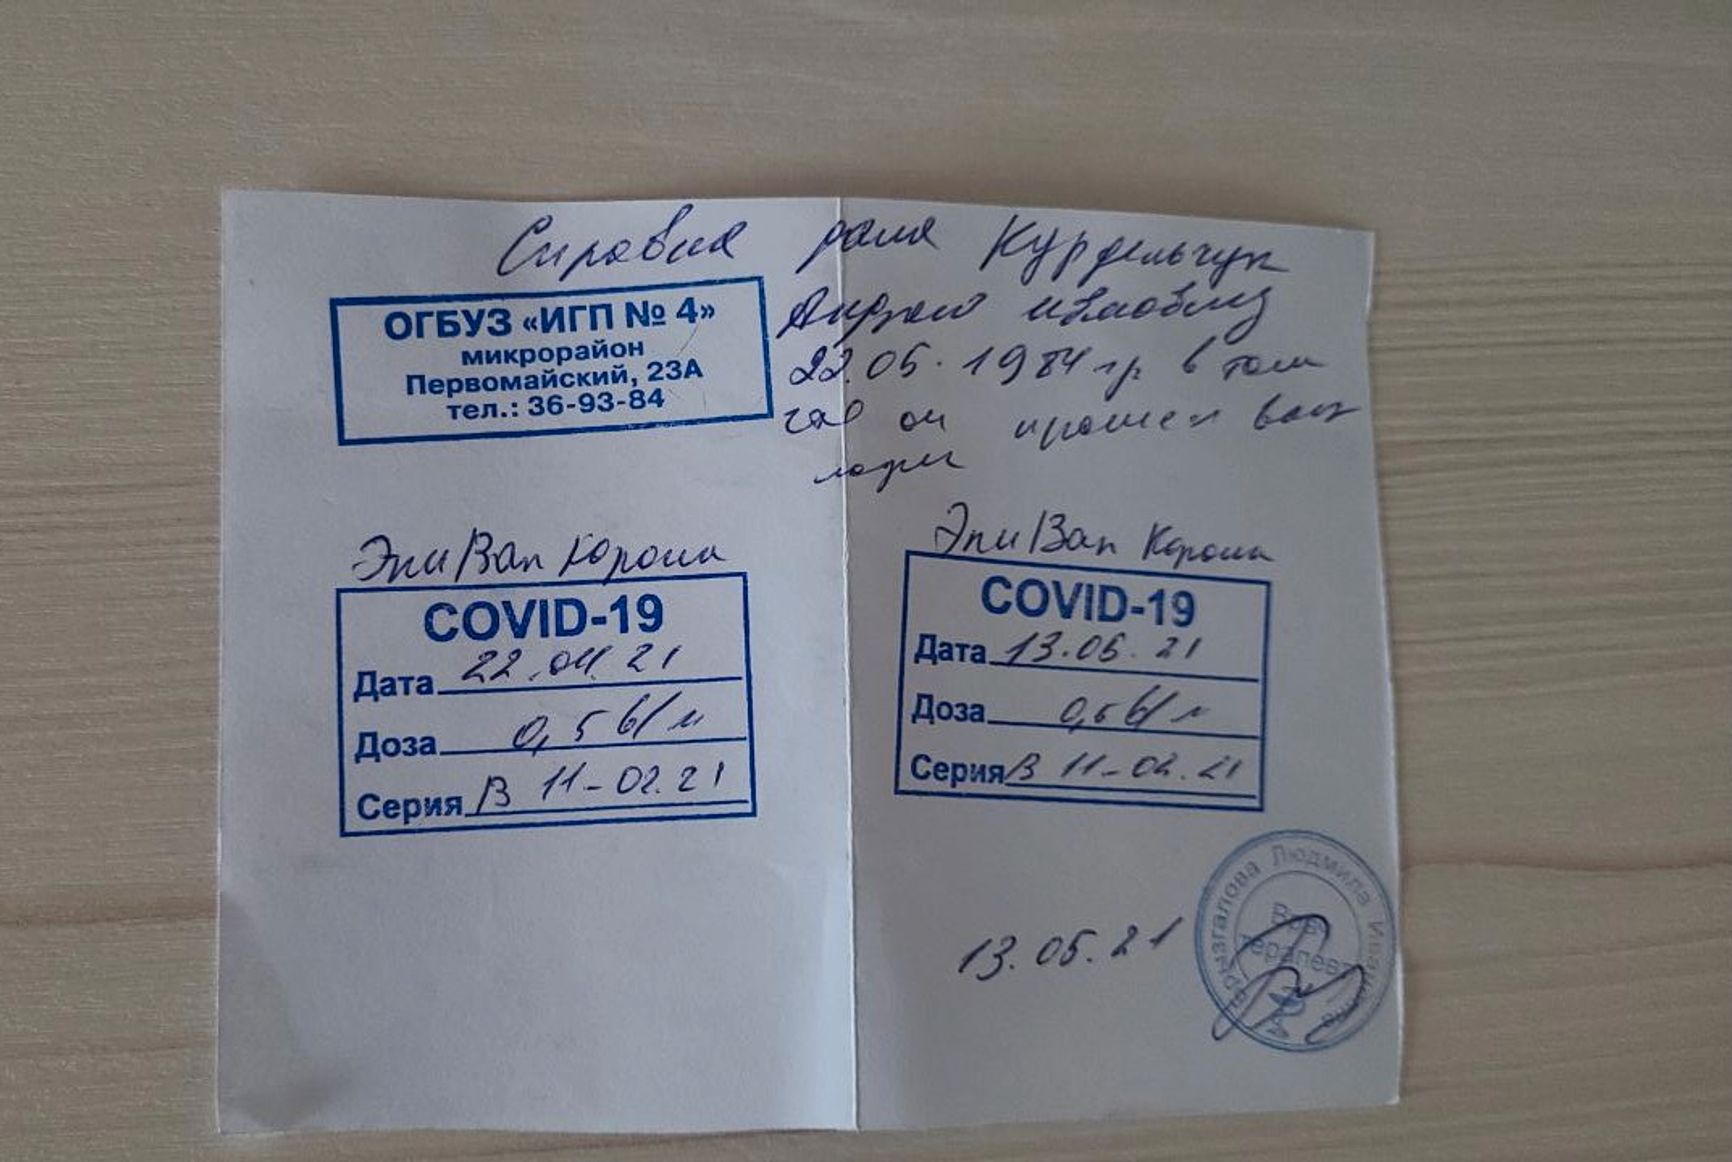 Справка дана Курдельчук
Андрею Ивановичу
22.05.1984 гр в том
что он прошел вак
ОГБУЗ «ИГП № 4»
микрорайон
Первомайский, 23А
тел.: 36-93-84
ЭпиВак Корона
COVID-19
Дата 22.04.21
Доза 0,5 в/м
Серия В 11-02.21
ЭпиВак Корона
COVID-19
Дата 13.05.21
Доза 0,5 в/м
Серия В 11-02.21
13.05.21
Брызгалова Людмила Ивановна
Врач
терапевт